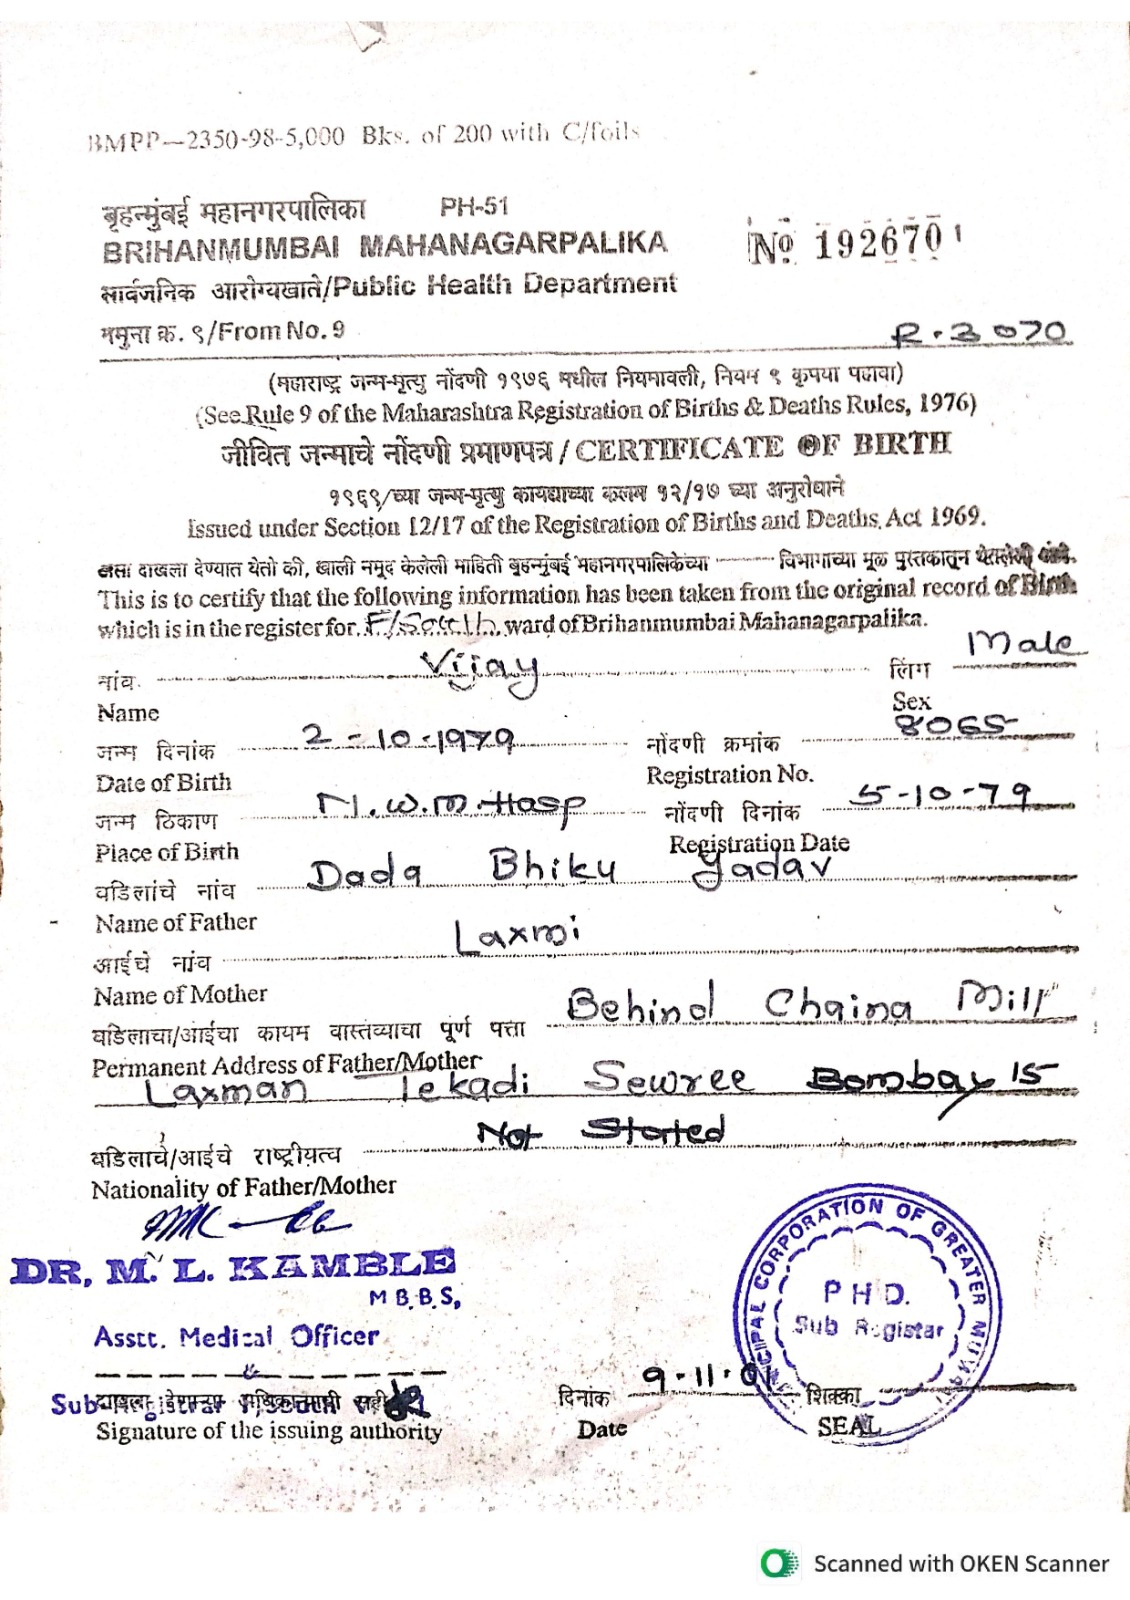 BMPP—2350-98-5,000 Bks. of 200 with C/foils
बृहन्मुंबई महानगरपालिका PH-51
BRIHANMUMBAI MAHANAGARPALIKA
№ 1926701
सार्वजनिक आरोग्यखाते/Public Health Department
नमुना क्र. ९/From No. 9
R.3070
(महाराष्ट्र जन्म-मृत्यु नोंदणी १९७६ मधील नियमावली, नियम ९ कृपया पहावा)
(See Rule 9 of the Maharashtra Registration of Births & Deaths Rules, 1976)
जीवित जन्माचे नोंदणी प्रमाणपत्र / CERTIFICATE OF BIRTH
१९६९/च्या जन्म-मृत्यु कायद्याच्या कलम १२/१७ च्या अनुरोधाने
Issued under Section 12/17 of the Registration of Births and Deaths Act 1969.
असा दाखला देण्यात येतो की, खाली नमूद केलेली माहिती बृहन्मुंबई महानगरपालिकेच्या विभागाच्या मूळ पुस्तकातून
This is to certify that the following information has been taken from the original record of Birth
which is in the register for F/South ward of Brihanmumbai Mahanagarpalika.
नांव Vijay लिंग Male
Name Sex
जन्म दिनांक 2-10-1979 नोंदणी क्रमांक 8065
Date of Birth Registration No.
जन्म ठिकाण N.W.M. Hosp नोंदणी दिनांक 5-10-79
Place of Birth Registration Date
वडिलांचे नांव Dada Bhiku Yadav
Name of Father
आईचे नांव Laxmi
Name of Mother
वडिलाचा/आईचा कायम वास्तव्याचा पूर्ण पत्ता Behind Chaina Mill
Permanent Address of Father/Mother
Laxman Tekadi Sewree Bombay 15
वडिलाचे/आईचे राष्ट्रीयत्व Not Stated
Nationality of Father/Mother
DR. M. L. KAMBLE
M B.B.S,
Asstt. Medical Officer
MUNICIPAL CORPORATION OF GREATER MUMBAI
P H D.
Sub Registar
दिनांक 9-11-01 शिक्का
Signature of the issuing authority Date SEAL
Scanned with OKEN Scanner